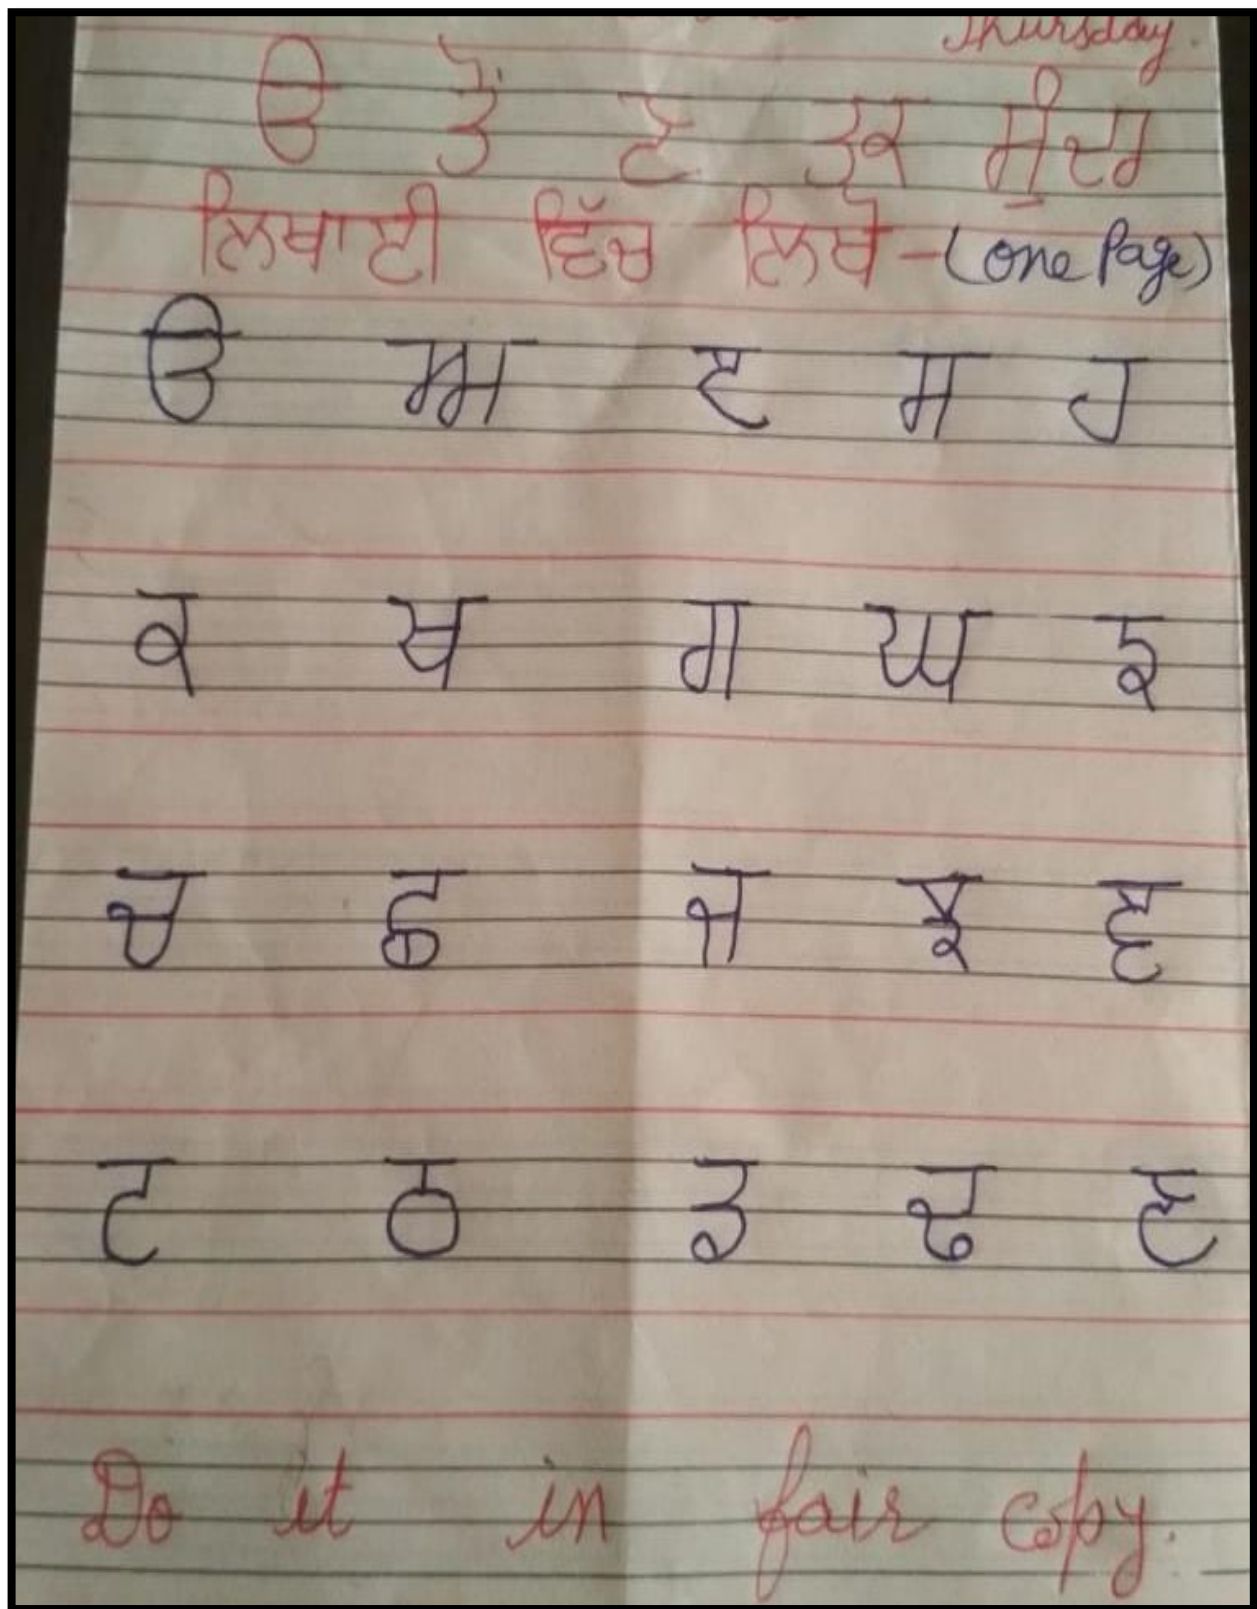 Thursday.
ੳ ਤੋਂ ਣ ਤਕ ਸੁੰਦਰ
ਲਿਖਾਈ ਵਿੱਚ ਲਿਖੋ - (One Page)
ੳ ਅ ੲ ਸ ਹ
ਕ ਖ ਗ ਘ ਙ
ਚ ਛ ਜ ਝ ਞ
ਟ ਠ ਡ ਢ ਣ
Do it in fair copy.